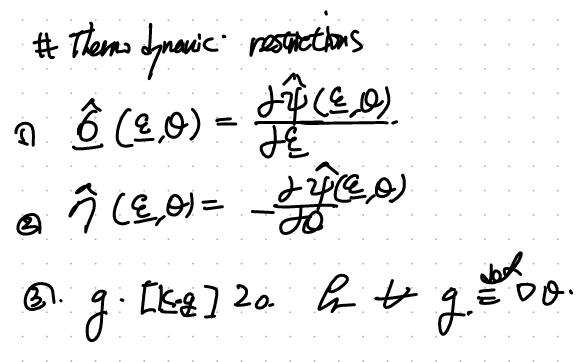 # Thermo dynamic restrictions
① σ̂ (ε,θ) = ∂ψ̂(ε,θ)/∂ε.
② η̂ (ε,θ) = -∂ψ̂(ε,θ)/∂θ
③. g · [K·g] ≥ 0. g ≡ ∇θ.